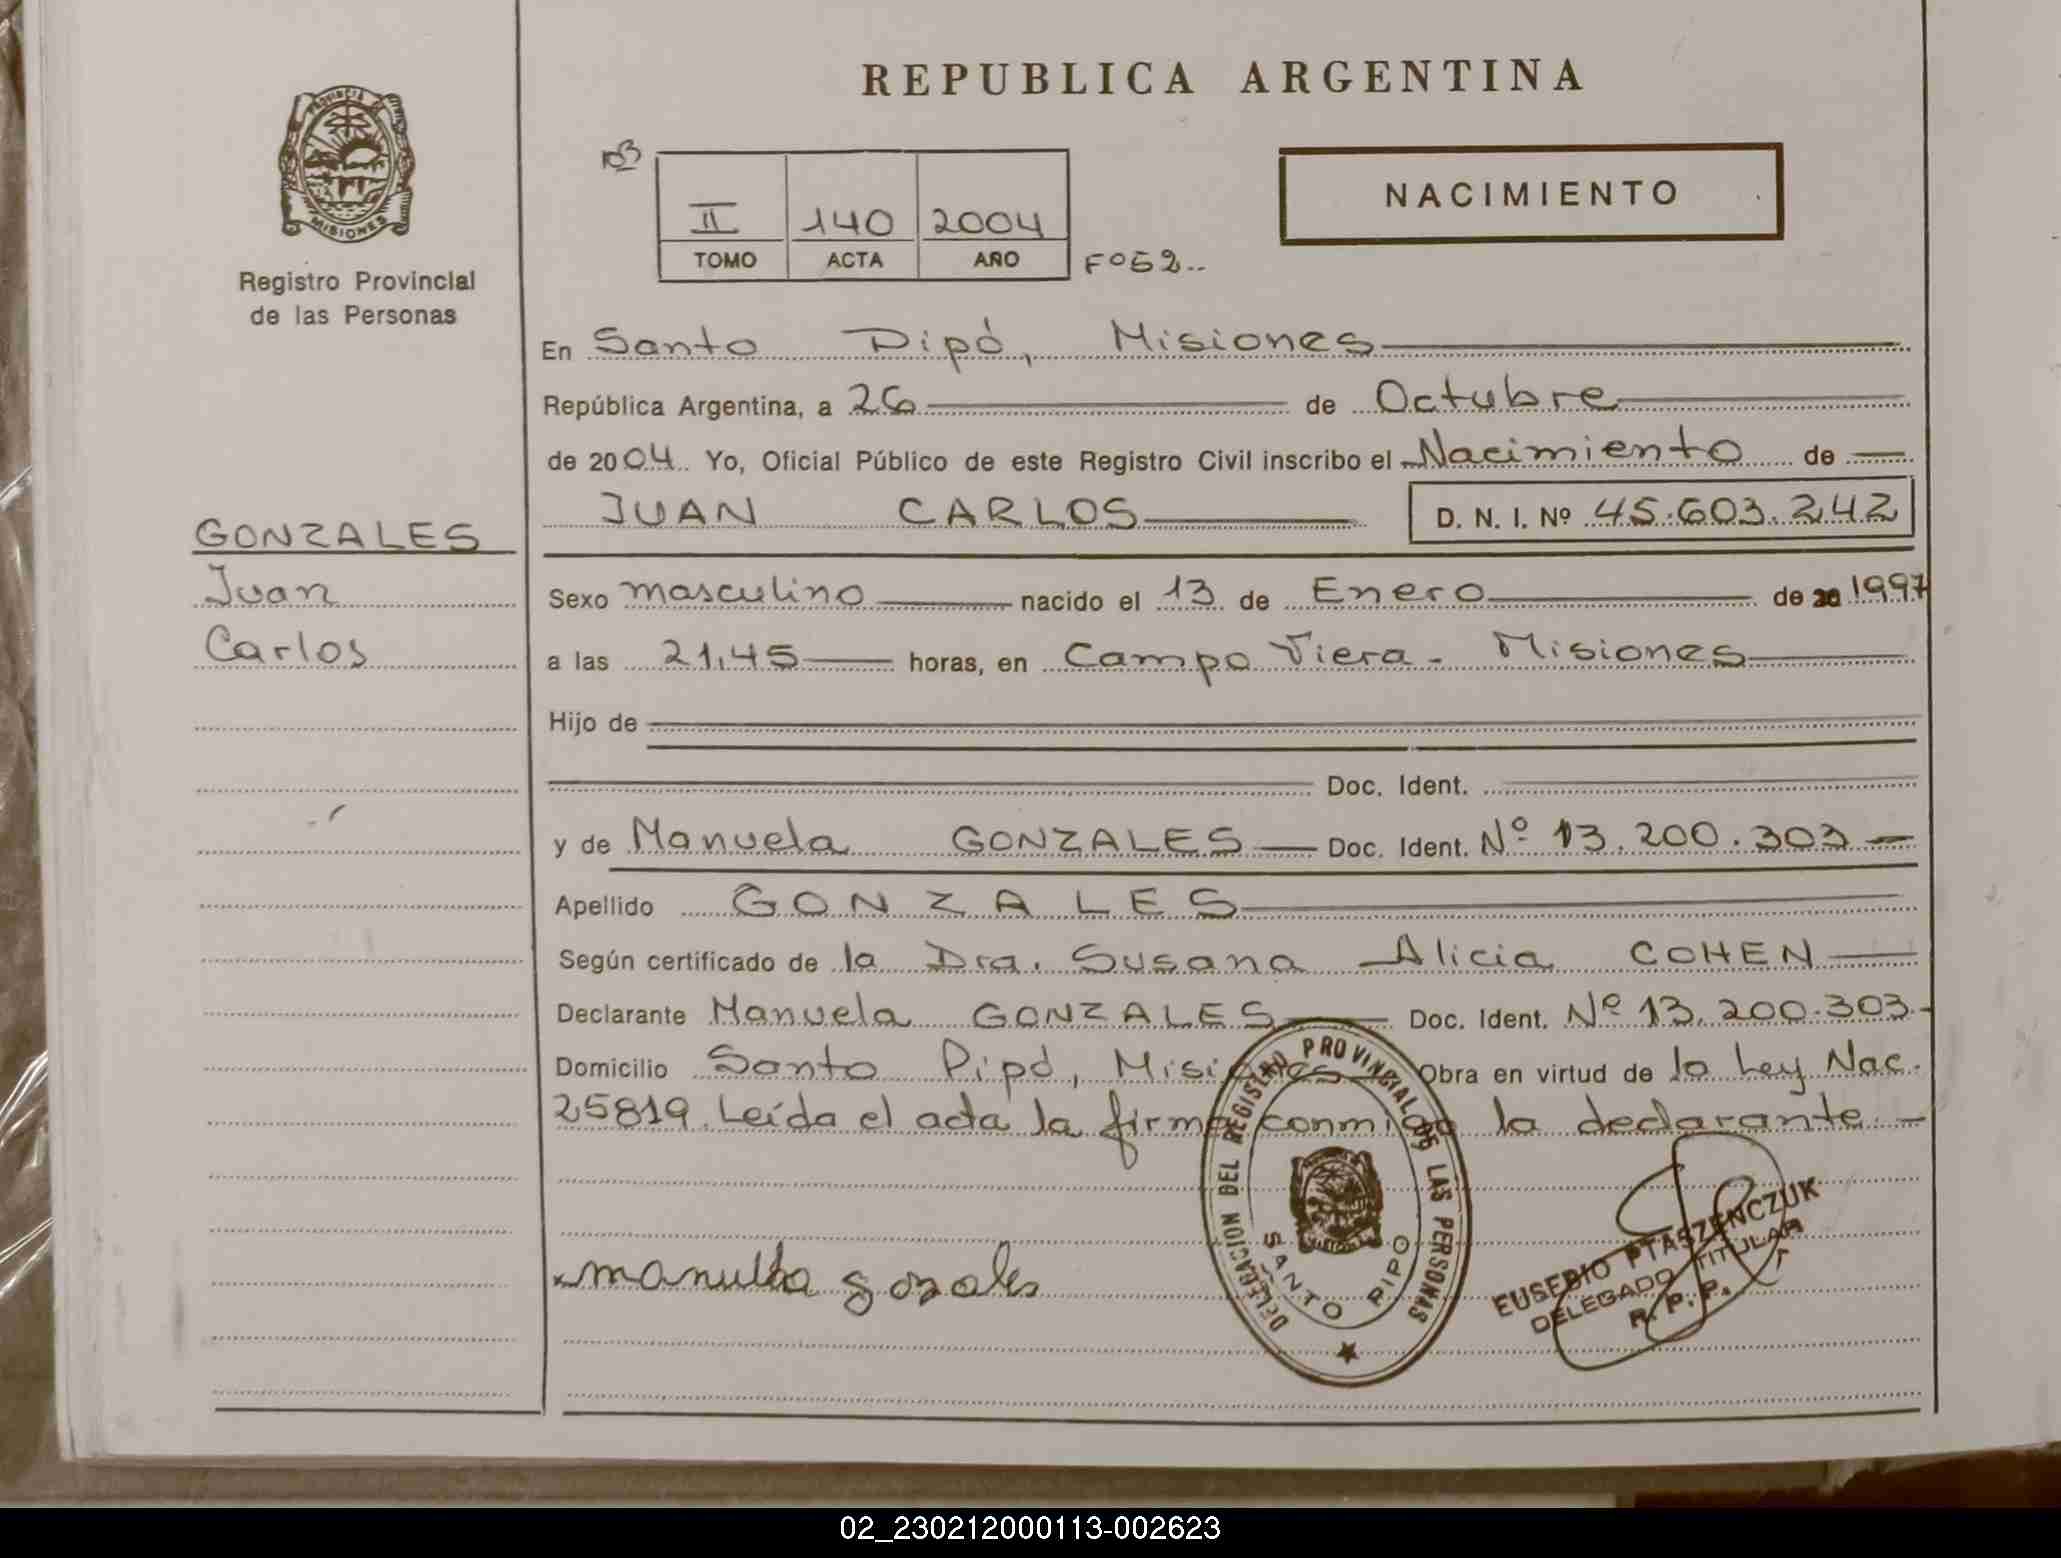 REPUBLICA ARGENTINA
PROVINCIA DE
MISIONES
Registro Provincial
de las Personas
II 140 2004
TOMO ACTA AÑO
Fº52..
NACIMIENTO
En Santo Pipó, Misiones
República Argentina, a 26 de Octubre
de 2004. Yo, Oficial Público de este Registro Civil inscribo el Nacimiento de
JUAN CARLOS D. N. I. Nº 45.603.242
GONZALES
Juan
Carlos
Sexo masculino nacido el 13 de Enero de 20 1997
a las 21,45 horas, en Campo Viera - Misiones
Hijo de
Doc. Ident.
y de Manuela GONZALES Doc. Ident. Nº 13.200.303
Apellido GONZALES
Según certificado de la Dra. Susana Alicia COHEN
Declarante Manuela GONZALES Doc. Ident. Nº 13.200.303-
Domicilio Santo Pipó, Misiones Obra en virtud de la Ley Nac.
25819. Leída el acta la firma conmigo la declarante.-
DELEGACION DEL REGISTRO PROVINCIAL DE LAS PERSONAS
SANTO PIPO
EUSEBIO PTASZENCZUK
DELEGADO TITULAR
R. P. P.
02_230212000113-002623